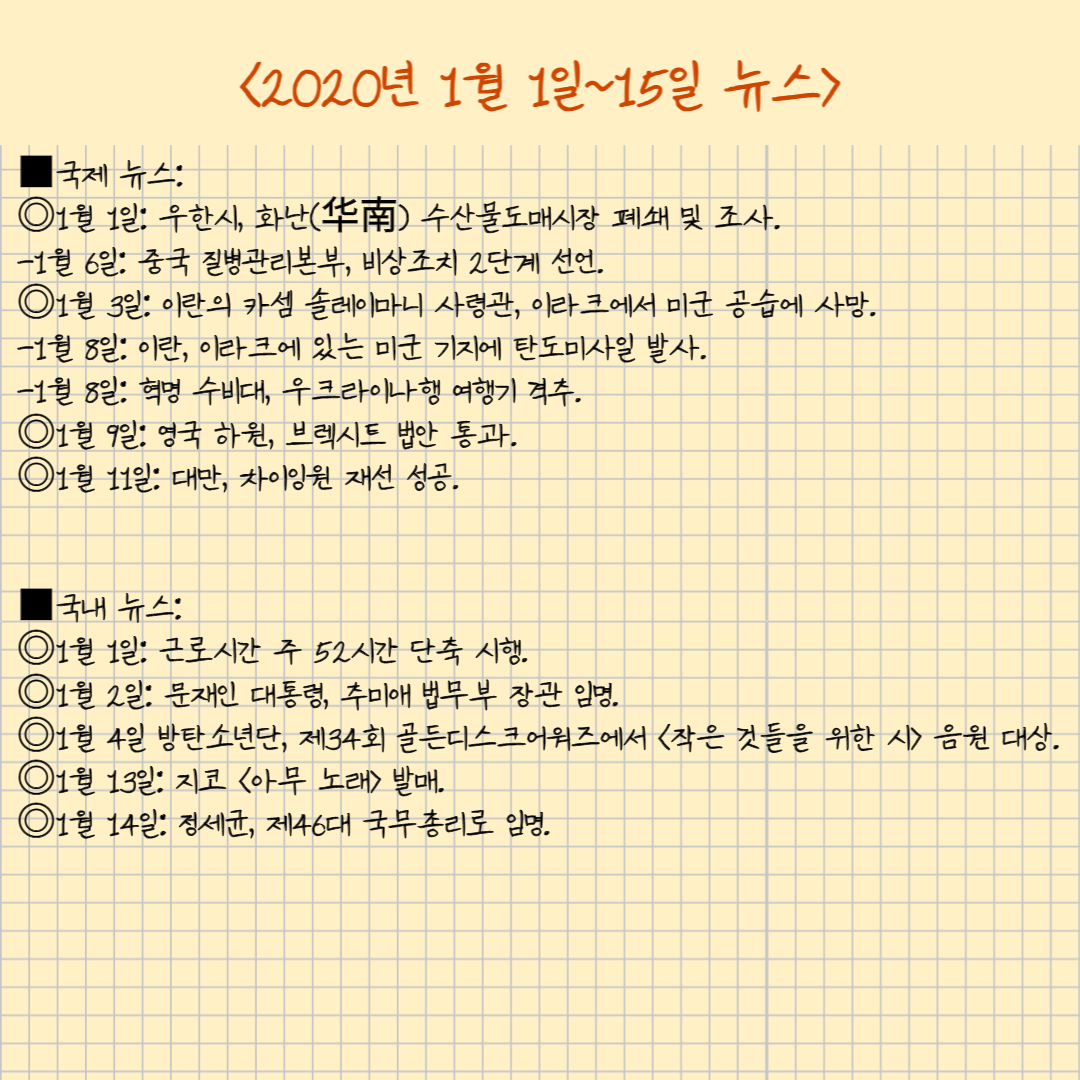 <2020년 1월 1일~15일 뉴스>
■국제 뉴스:
◎1월 1일: 우한시, 화난(华南) 수산물도매시장 폐쇄 및 조사.
-1월 6일: 중국 질병관리본부, 비상조치 2단계 선언.
◎1월 3일: 이란의 카셈 솔레이마니 사령관, 이라크에서 미군 공습에 사망.
-1월 8일: 이란, 이라크에 있는 미군 기지에 탄도미사일 발사.
-1월 8일: 혁명 수비대, 우크라이나행 여행기 격추.
◎1월 9일: 영국 하원, 브렉시트 법안 통과.
◎1월 11일: 대만, 차이잉원 재선 성공.
■국내 뉴스:
◎1월 1일: 근로시간 주 52시간 단축 시행.
◎1월 2일: 문재인 대통령, 추미애 법무부 장관 임명.
◎1월 4일 방탄소년단, 제34회 골든디스크어워즈에서 <작은 것들을 위한 시> 음원 대상.
◎1월 13일: 지코 <아무 노래> 발매.
◎1월 14일: 정세균, 제46대 국무총리로 임명.